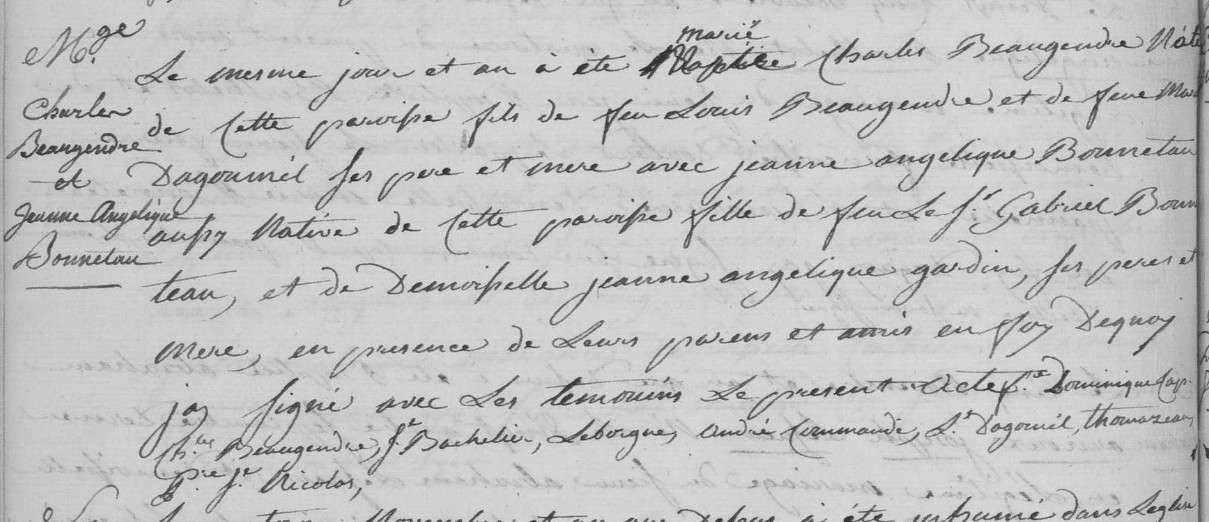 M.ge
Charles
Beaugendre
et
Jeanne Angelique
Bonnetau
Le mesme jour et an à été marié Charles Beaugendre Natif
de Cette paroisse fils de feu Louis Beaugendre et de feue
Dagoumil ses pere et mere avec jeanne angelique Bonnetau
aussy Native de Cette paroisse fille de feu Le Sr Gabriel Bonn
teau, et de Demoiselle jeanne angelique gardin, ses peres et
mere, en presence de Leurs parens et amis en foy Dequoy
jay signé avec Les temouins Le present acte Dominique Cap.
Ch.les Beaugendre, Je Bachelier, Leborgne, andré Commande, L.s Dagomil, thomazeau
P.re Je Nicolas,